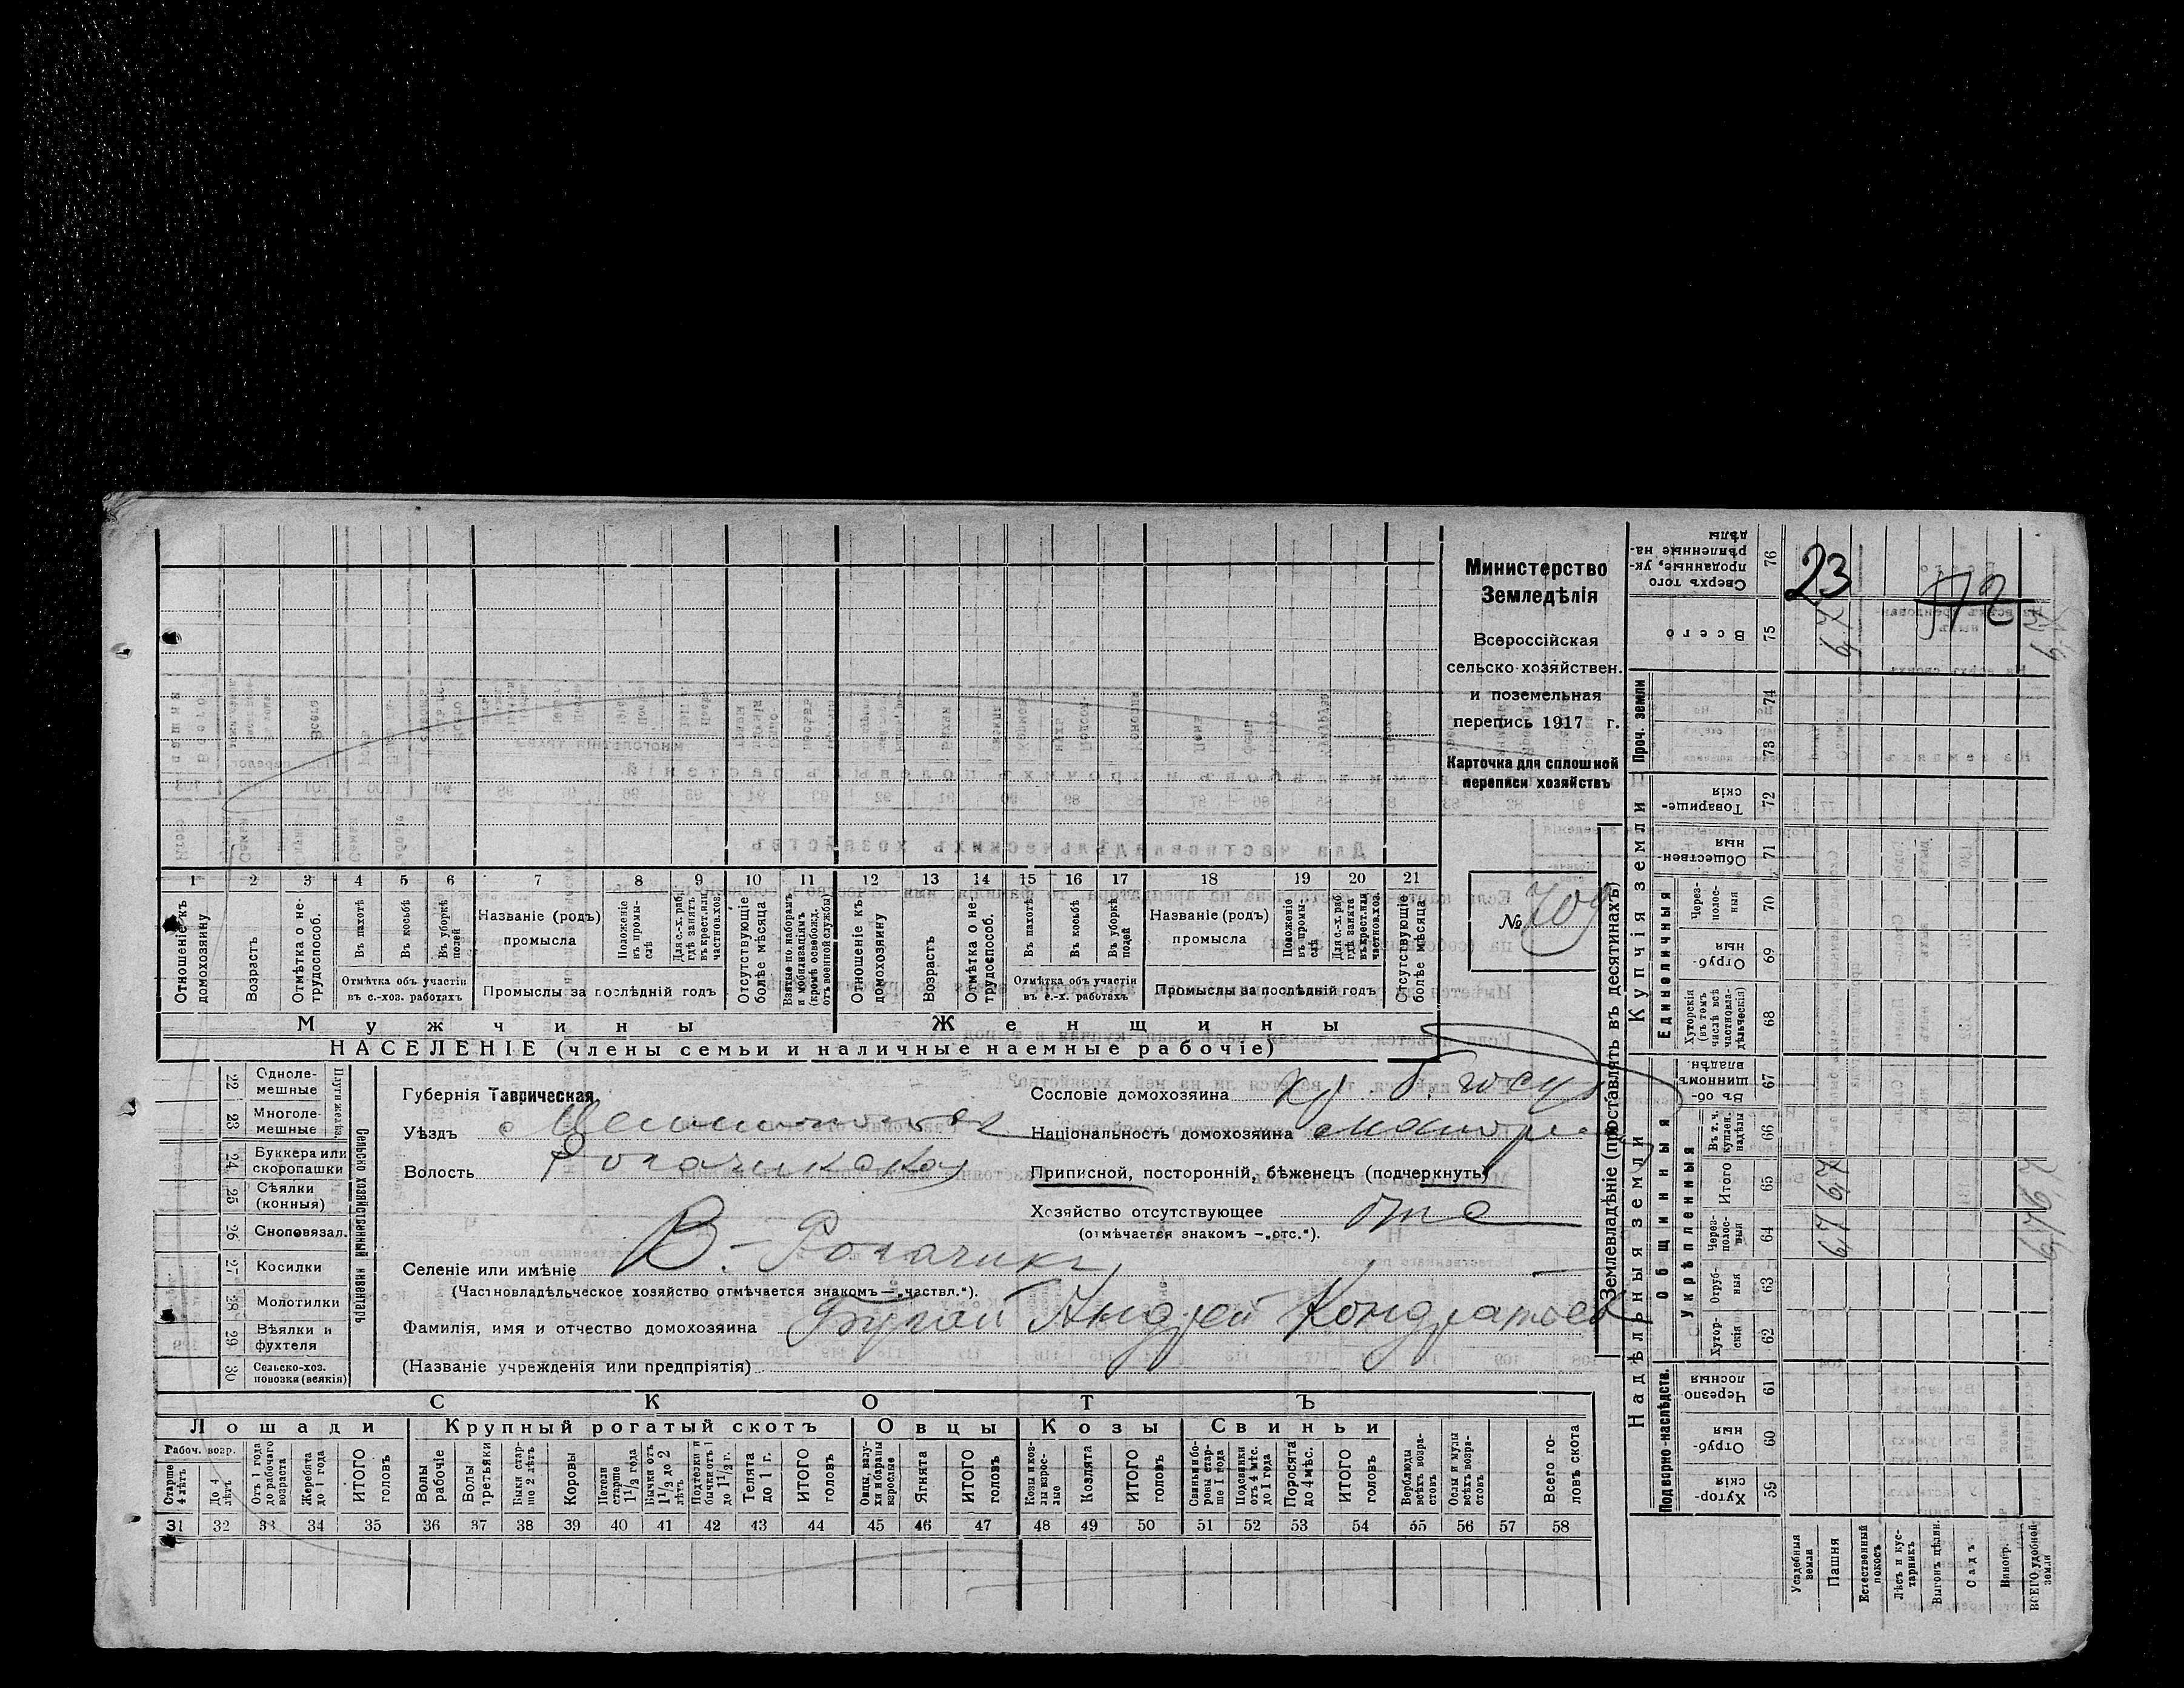 Министерство
Земледѣлія
Всероссійская
сельско-хозяйствен.
и поземельная
перепись 1917 г.
Карточка для сплошной
переписи хозяйствъ
№ 709
1 2 3 4 5 6 7 8 9 10 11 12 13 14 15 16 17 18 19 20 21
Отношеніе къ домохозяину
Возрастъ
Отмѣтка о не-трудоспособ.
Въ пахотѣ
Въ косьбѣ
Въ уборкѣ полей
Отмѣтка объ участіи въ с.-хоз. работахъ
Названіе (родъ) промысла
Положеніе въ промы-слѣ
Для с.-х. раб. гдѣ занятъ въ крест. или частнов. хоз.
Промыслы за послѣдній годъ
Отсутствующіе болѣе мѣсяца
Взятые по наборамъ и мобилизаціямъ (кромѣ освобожд. отъ военной службы)
Отношеніе къ домохозяину
Возрастъ
Отмѣтка о не-трудоспособ.
Въ пахотѣ
Въ косьбѣ
Въ уборкѣ полей
Отмѣтка объ участіи въ с.-х. работахъ
Названіе (родъ) промысла
Положеніе въ промы-слѣ
Для с.-х. раб. гдѣ занята въ крест. или частнов. хоз.
Промыслы за послѣдній годъ
Отсутствующіе болѣе мѣсяца
Мужчины Женщины
НАСЕЛЕНІЕ (члены семьи и наличные наемные рабочіе)
Сельско хозяйственный инвентарь
Плуги желѣз.
22 Одноле-мешные
23 Многоле-мешные
24 Буккера или скоропашки
25 Сѣялки (конныя)
26 Сноповязал.
27 Косилки
28 Молотилки
29 Вѣялки и фухтеля
30 Сельско-хоз. повозки (всякія)
Губернія Таврическая
Уѣздъ
Волость Рогачикская
Селеніе или имѣніе В. - Рогачикъ
(Частновладѣльческое хозяйство отмѣчается знакомъ—„частвл.“).
Фамилія, имя и отчество домохозяина Бугай Андрей Кондратьев
(Названіе учрежденія или предпріятія)
Сословіе домохозяина кр. б. госуд
Національность домохозяина малор.
Приписной, посторонній, бѣженецъ (подчеркнуть)
Хозяйство отсутствующее отс
(отмѣчается знакомъ —„отс.“).
СКОТЪ
Лошади Крупный рогатый скотъ Овцы Козы Свиньи
Рабоч. возр.
Старше 4 лѣтъ
До 4 лѣтъ
Отъ 1 года до рабочаго возраста
Жеребята до 1 года
ИТОГО головъ
Волы рабочіе
Волы третьяки
Быки стар-ше 2 лѣтъ
Коровы
Нетели старше 1½ года
Бычки отъ 1½ до 2 лѣтъ
Подтелки и бычки отъ 1 до 1½ г.
Телята до 1 г.
ИТОГО головъ
Овцы, валу-хи и бараны взрослые
Ягнята
ИТОГО головъ
Козы и коз-лы взрос-лые
Козлята
ИТОГО головъ
Свиньи и бо-ровы стар-ше 1 года
Подсвинки отъ 4 мѣс. до 1 года
Поросята до 4 мѣс.
ИТОГО головъ
Верблюды всѣхъ возра-стовъ
Ослы и мулы всѣхъ возра-стовъ
Всего го-ловъ скота
31 32 33 34 35 36 37 38 39 40 41 42 43 44 45 46 47 48 49 50 51 52 53 54 55 56 57 58
Землевладѣніе (проставлять въ десятинахъ)
Надѣльныя земли
Подворно-наслѣдств.
59 Хутор-скія
60 Отруб-ныя
61 Черезпо-лосныя
Общинныя
Укрѣпленныя
62 Хутор-скія
63 Отруб-ныя
64 Через-полос-ныя 6,7
65 Итого 6,7
66 Въ т. ч. куплен. надѣлы
67 Въ об-щинномъ владѣн.
Купчія земли
Единоличныя
68 Хуторскія (въ томъ числѣ всѣ частновла-дѣльческія)
69 Отруб-ныя
70 Через-полос-ныя
71 Обществен-ныя
72 Товарище-скія
Проч. земли
73
74
75 Всего 6,7
76 Сверхъ того проданные, ук-рѣпленные на-дѣлы
23
572
Усадебныя земли
Пашня
Естественный покосъ
Лѣсъ и кус-тарникъ
Выгонъ цѣлин.
Садъ
Виногр.
ВСЕГО удобной земли